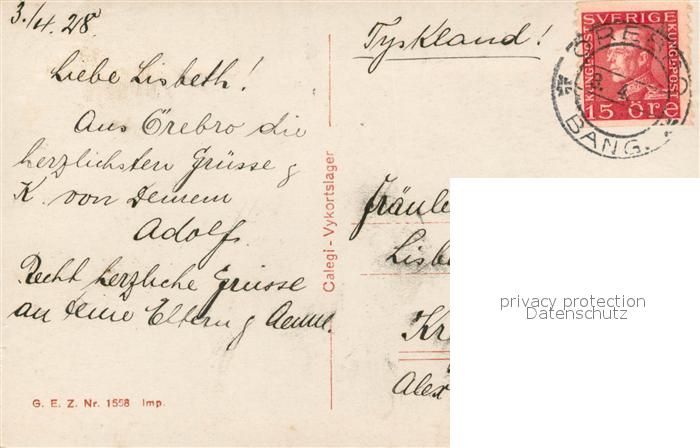 3./4. 28.
Liebe Lisbeth!
Aus Örebro die
herzlichsten Grüsse &
K. von Deinem
Adolf.
Recht herzliche Grüsse
an Deine Eltern & Aenne.
G. E. Z. Nr. 1558 Imp.
Calegi - Vykortslager
Tyskland!
SVERIGE
KUNGL. POST
KUNGL. POST
15 ÖRE
ÖREBRO
3. 4.
BANG.
Fräule
Lisb
Kr
Alex
privacy protection
Datenschutz